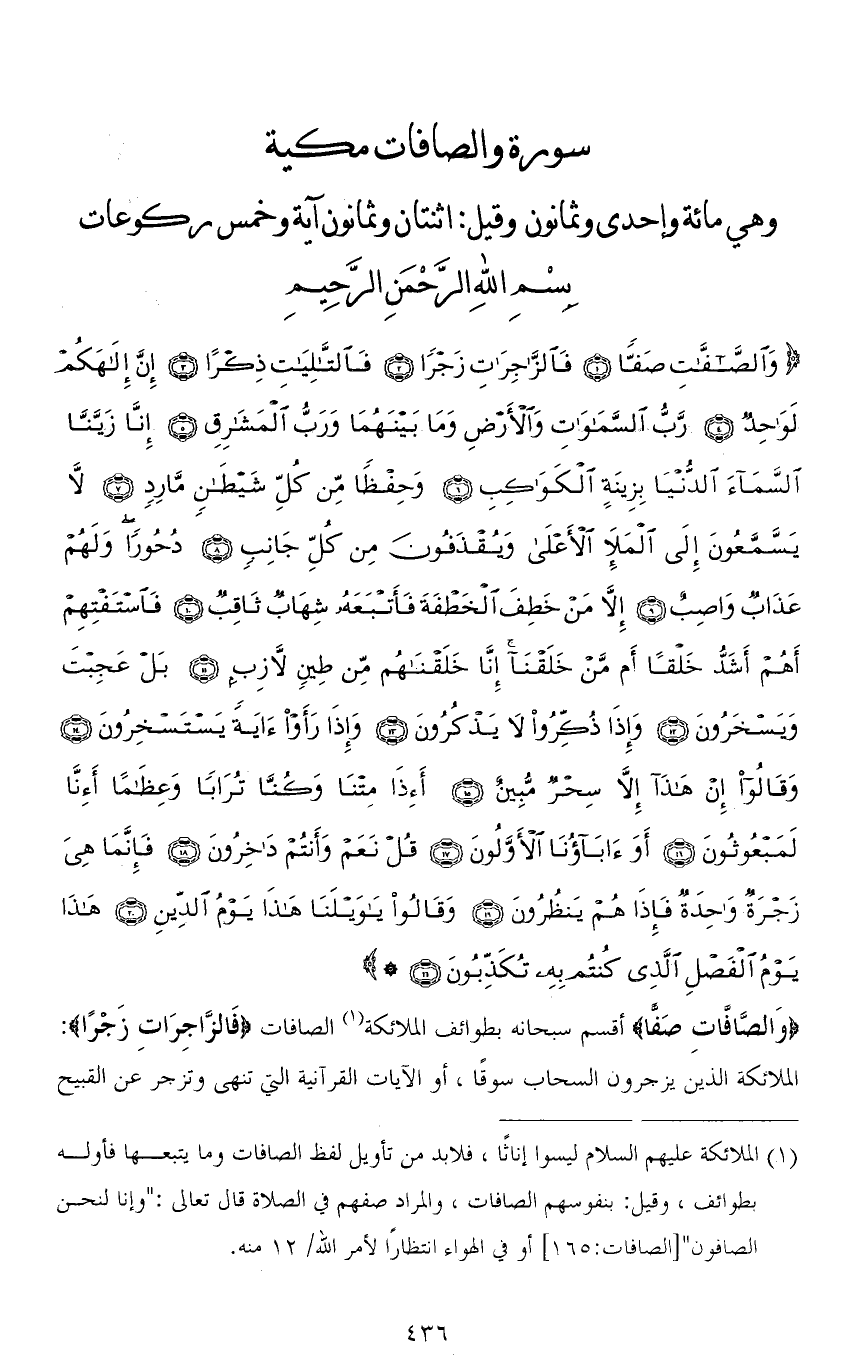 سورة والصافات مكية
وهي مائة وإحدى وثمانون وقيل: اثنتان وثمانون آية وخمس ركوعات
بِسْمِ اللهِ الرَّحْمَنِ الرَّحِيمِ
﴿ وَٱلصَّـٰٓفَّـٰتِ صَفًّا ﴿١﴾ فَٱلزَّٰجِرَٰتِ زَجْرًا ﴿٢﴾ فَٱلتَّـٰلِيَـٰتِ ذِكْرًا ﴿٣﴾ إِنَّ إِلَـٰهَكُمْ
لَوَٰحِدٌ ﴿٤﴾ رَّبُّ ٱلسَّمَـٰوَٰتِ وَٱلْأَرْضِ وَمَا بَيْنَهُمَا وَرَبُّ ٱلْمَشَـٰرِقِ ﴿٥﴾ إِنَّا زَيَّنَّا
ٱلسَّمَآءَ ٱلدُّنْيَا بِزِينَةٍ ٱلْكَوَاكِبِ ﴿٦﴾ وَحِفْظًا مِّن كُلِّ شَيْطَـٰنٍ مَّارِدٍ ﴿٧﴾ لَّا
يَسَّمَّعُونَ إِلَى ٱلْمَلَإِ ٱلْأَعْلَىٰ وَيُقْذَفُونَ مِن كُلِّ جَانِبٍ ﴿٨﴾ دُحُورًا ۖ وَلَهُمْ
عَذَابٌ وَاصِبٌ ﴿٩﴾ إِلَّا مَنْ خَطِفَ ٱلْخَطْفَةَ فَأَتْبَعَهُۥ شِهَابٌ ثَاقِبٌ ﴿١٠﴾ فَٱسْتَفْتِهِمْ
أَهُمْ أَشَدُّ خَلْقًا أَم مَّنْ خَلَقْنَآ ۚ إِنَّا خَلَقْنَـٰهُم مِّن طِينٍ لَّازِبٍ ﴿١١﴾ بَلْ عَجِبْتَ
وَيَسْخَرُونَ ﴿١٢﴾ وَإِذَا ذُكِّرُوا۟ لَا يَذْكُرُونَ ﴿١٣﴾ وَإِذَا رَأَوْا۟ ءَايَةً يَسْتَسْخِرُونَ ﴿١٤﴾
وَقَالُوٓا۟ إِنْ هَـٰذَآ إِلَّا سِحْرٌ مُّبِينٌ ﴿١٥﴾ أَءِذَا مِتْنَا وَكُنَّا تُرَابًا وَعِظَـٰمًا أَءِنَّا
لَمَبْعُوثُونَ ﴿١٦﴾ أَوَ ءَابَآؤُنَا ٱلْأَوَّلُونَ ﴿١٧﴾ قُلْ نَعَمْ وَأَنتُمْ دَٰخِرُونَ ﴿١٨﴾ فَإِنَّمَا هِىَ
زَجْرَةٌ وَٰحِدَةٌ فَإِذَا هُمْ يَنظُرُونَ ﴿١٩﴾ وَقَالُوا۟ يَـٰوَيْلَنَا هَـٰذَا يَوْمُ ٱلدِّينِ ﴿٢٠﴾ هَـٰذَا
يَوْمُ ٱلْفَصْلِ ٱلَّذِى كُنتُم بِهِۦ تُكَذِّبُونَ ﴿٢١﴾ * ﴾
﴿وَالصَّافَّاتِ صَفًّا﴾ أقسم سبحانه بطوائف الملائكة(١) الصافات ﴿فَالزَّاجِرَاتِ زَجْرًا﴾:
الملائكة الذين يزجرون السحاب سوقًا ، أو الآيات القرآنية التي تنهى وتزجر عن القبيح
(١) الملائكة عليهم السلام ليسوا إناثًا ، فلابد من تأويل لفظ الصافات وما يتبعها فأوله
بطوائف ، وقيل: بنفوسهم الصافات ، والمراد صفهم في الصلاة قال تعالى :"وإنا لنحن
الصافون"[الصافات:١٦٥] أو في الهواء انتظارًا لأمر الله/ ١٢ منه.
٤٣٦